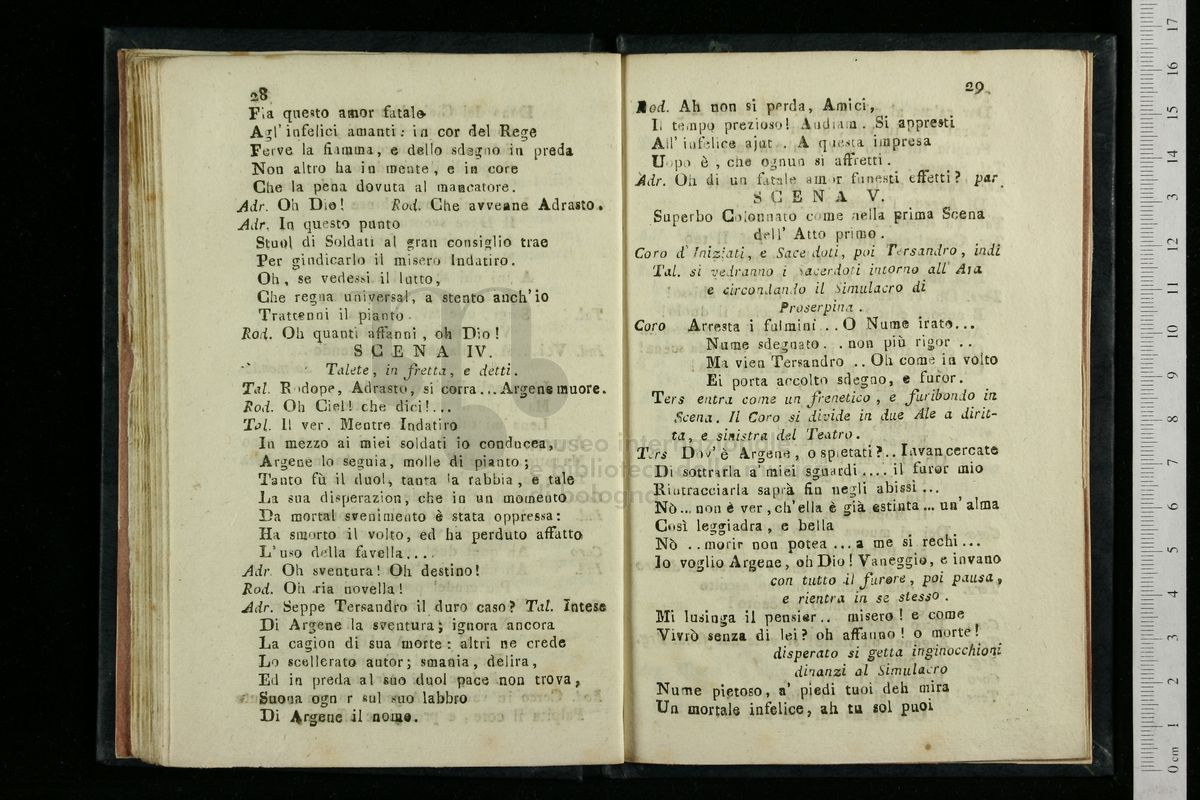 28
Fia questo amor fatale
Agl' infelici amanti: in cor del Rege
Ferve la fiamma, e dello sdegno in preda
Non altro ha in mente, e in core
Che la pena dovuta al mancatore.
Adr. Oh Dio! Rod. Che avvenne Adrasto.
Adr. In questo punto
Stuol di Soldati al gran consiglio trae
Per giudicarlo il misero Indatiro.
Oh, se vedessi il lutto,
Che regna universal, a stento anch' io
Trattenni il pianto.
Rod. Oh quanti affanni, oh Dio!
SCENA IV.
Talete, in fretta, e detti.
Tal. Rodope, Adrasto, si corra... Argene muore.
Rod. Oh Ciel! che dici!...
Tal. Il ver. Mentre Indatiro
In mezzo ai miei soldati io conducea,
Argene lo seguia, molle di pianto;
Tanto fù il duol, tanta la rabbia, e tale
La sua disperazion, che in un momento
Da mortal svenimento è stata oppressa:
Ha smorto il volto, ed ha perduto affatto
L' uso della favella....
Adr. Oh sventura! Oh destino!
Rod. Oh ria novella!
Adr. Seppe Tersandro il duro caso? Tal. Intese
Di Argene la sventura; ignora ancora
La cagion di sua morte: altri ne crede
Lo scellerato autor; smania, delira,
Ed in preda al suo duol pace non trova,
Suona ogn r sul suo labbro
Di Argene il nome.
29
Rod. Ah non si perda, Amici,
Il tempo prezioso! Andiam. Si appresti
All' infelice ajut . A questa impresa
Uopo è, che ognun si affretti.
Adr. Oh di un fatale amor funesti effetti? par.
SCENA V.
Superbo Colonnato come nella prima Scena
dell' Atto primo.
Coro d' Iniziati, e Sacerdoti, poi Tersandro, indi
Tal. si vedranno i Sacerdoti intorno all' Ara
e circondando il Simulacro di
Proserpina.
Coro Arresta i fulmini .. O Nume irato...
Nume sdegnato. . non più rigor ..
Ma vien Tersandro .. Oh come in volto
Ei porta accolto sdegno, e furor.
Ters entra come un frenetico, e furibondo in
Scena. Il Coro si divide in due Ale a dirit-
ta, e sinistra del Teatro.
Ters Dov' è Argene, o spietati?.. Invan cercate
Di sottrarla a' miei sguardi .... il furor mio
Rintracciarla saprà fin negli abissi...
Nò... non è ver, ch' ella è già estinta... un' alma
Così leggiadra, e bella
Nò .. morir non potea ... a me si rechi...
Io voglio Argene, oh Dio! Vaneggio, e invano
con tutto il furore, poi pausa,
e rientra in se stesso.
Mi lusinga il pensier.. misero! e come
Vivrò senza di lei? oh affanno! o morte!
disperato si getta inginocchioni
dinanzi al Simulacro
Nume pietoso, a' piedi tuoi deh mira
Un mortale infelice, ah tu sol puoi
museo internazionale
e biblioteca
bologna
0 cm 1 2 3 4 5 6 7 8 9 10 11 12 13 14 15 16 17